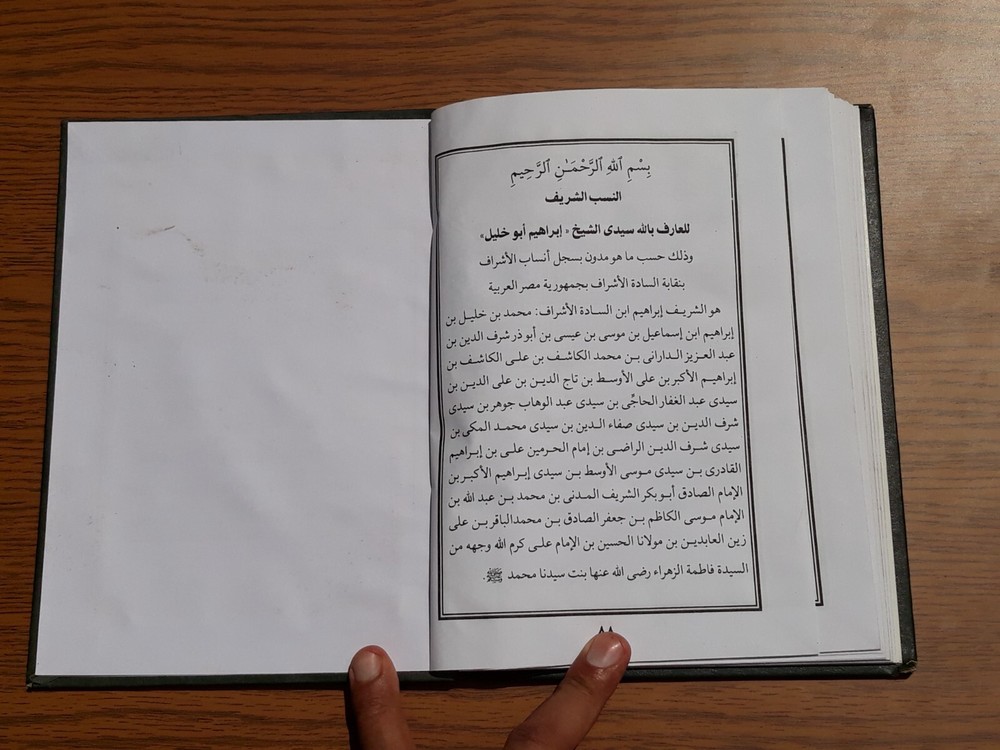 بِسْمِ ٱللَّهِ ٱلرَّحْمَـٰنِ ٱلرَّحِيمِ
النسب الشريف
للعارف بالله سيدى الشيخ « إبراهيم أبو خليل»
وذلك حسب ما هو مدون بسجل أنساب الأشراف
بنقابة السادة الأشراف بجمهورية مصر العربية
هو الشريف إبراهيم ابن السادة الأشراف: محمد بن خليل بن
إبراهيم ابن إسماعيل بن موسى بن عيسى بن أبو ذر شرف الدين بن
عبد العزيز الدارانى بن محمد الكاشف بن على الكاشف بن
إبراهيم الأكبر بن على الأوسط بن تاج الدين بن على الدين بن
سيدى عبد الغفار الحاجِّى بن سيدى عبد الوهاب جوهر بن سيدى
شرف الدين بن سيدى صفاء الدين بن سيدى محمد المكى بن
سيدى شرف الدين الراضى بن إمام الحرمين على بن إبراهيم
القادرى بن سيدى موسى الأوسط بن سيدى إبراهيم الأكبر بن
الإمام الصادق أبو بكر الشريف المدنى بن محمد بن عبد الله بن
الإمام موسى الكاظم بن جعفر الصادق بن محمد الباقر بن على
زين العابدين بن مولانا الحسين بن الإمام على كرم الله وجهه من
السيدة فاطمة الزهراء رضى الله عنها بنت سيدنا محمد ﷺ.